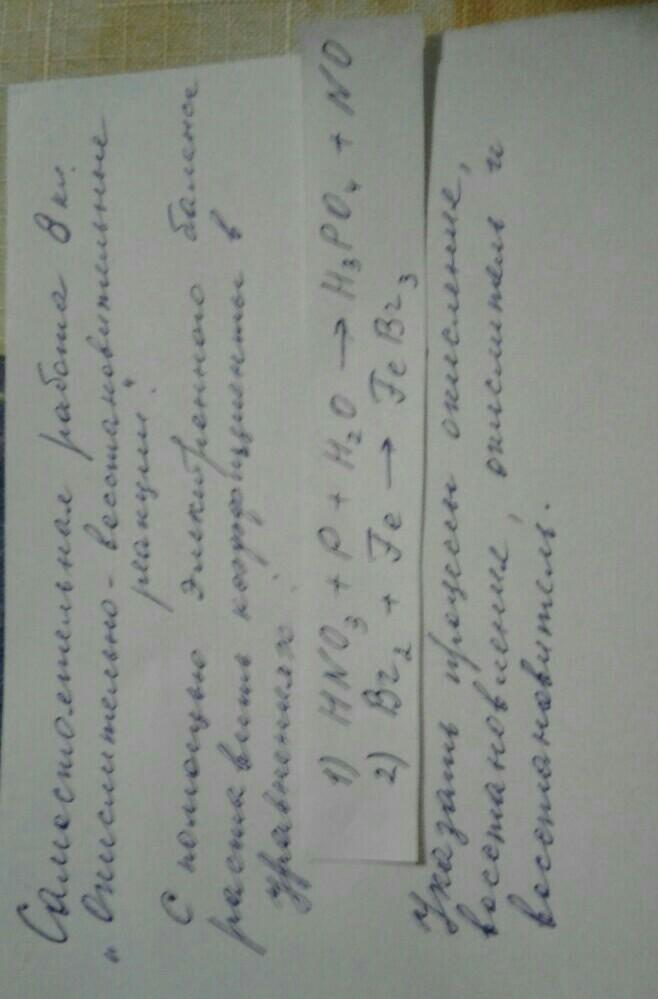 Самостоятельная работа 8 кл.
„Окислительно-восстановительные
реакции"
С помощью электронного баланса
расставить коэффициенты в
уравнениях:
1) HNO₃ + P + H₂O → H₃PO₄ + NO
2) Br₂ + Fe → FeBr₃
Указать процессы окисления,
восстановления, окислитель и
восстановитель.